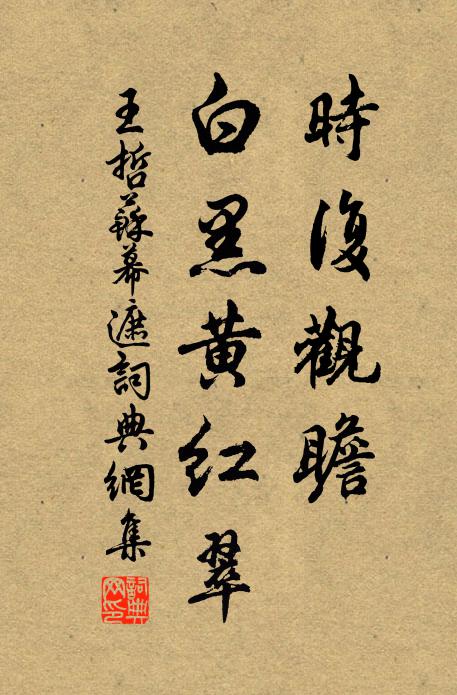 時復觀瞻
白黑黃紅翠
王哲蘇幕遮詞典網集
詞典網印